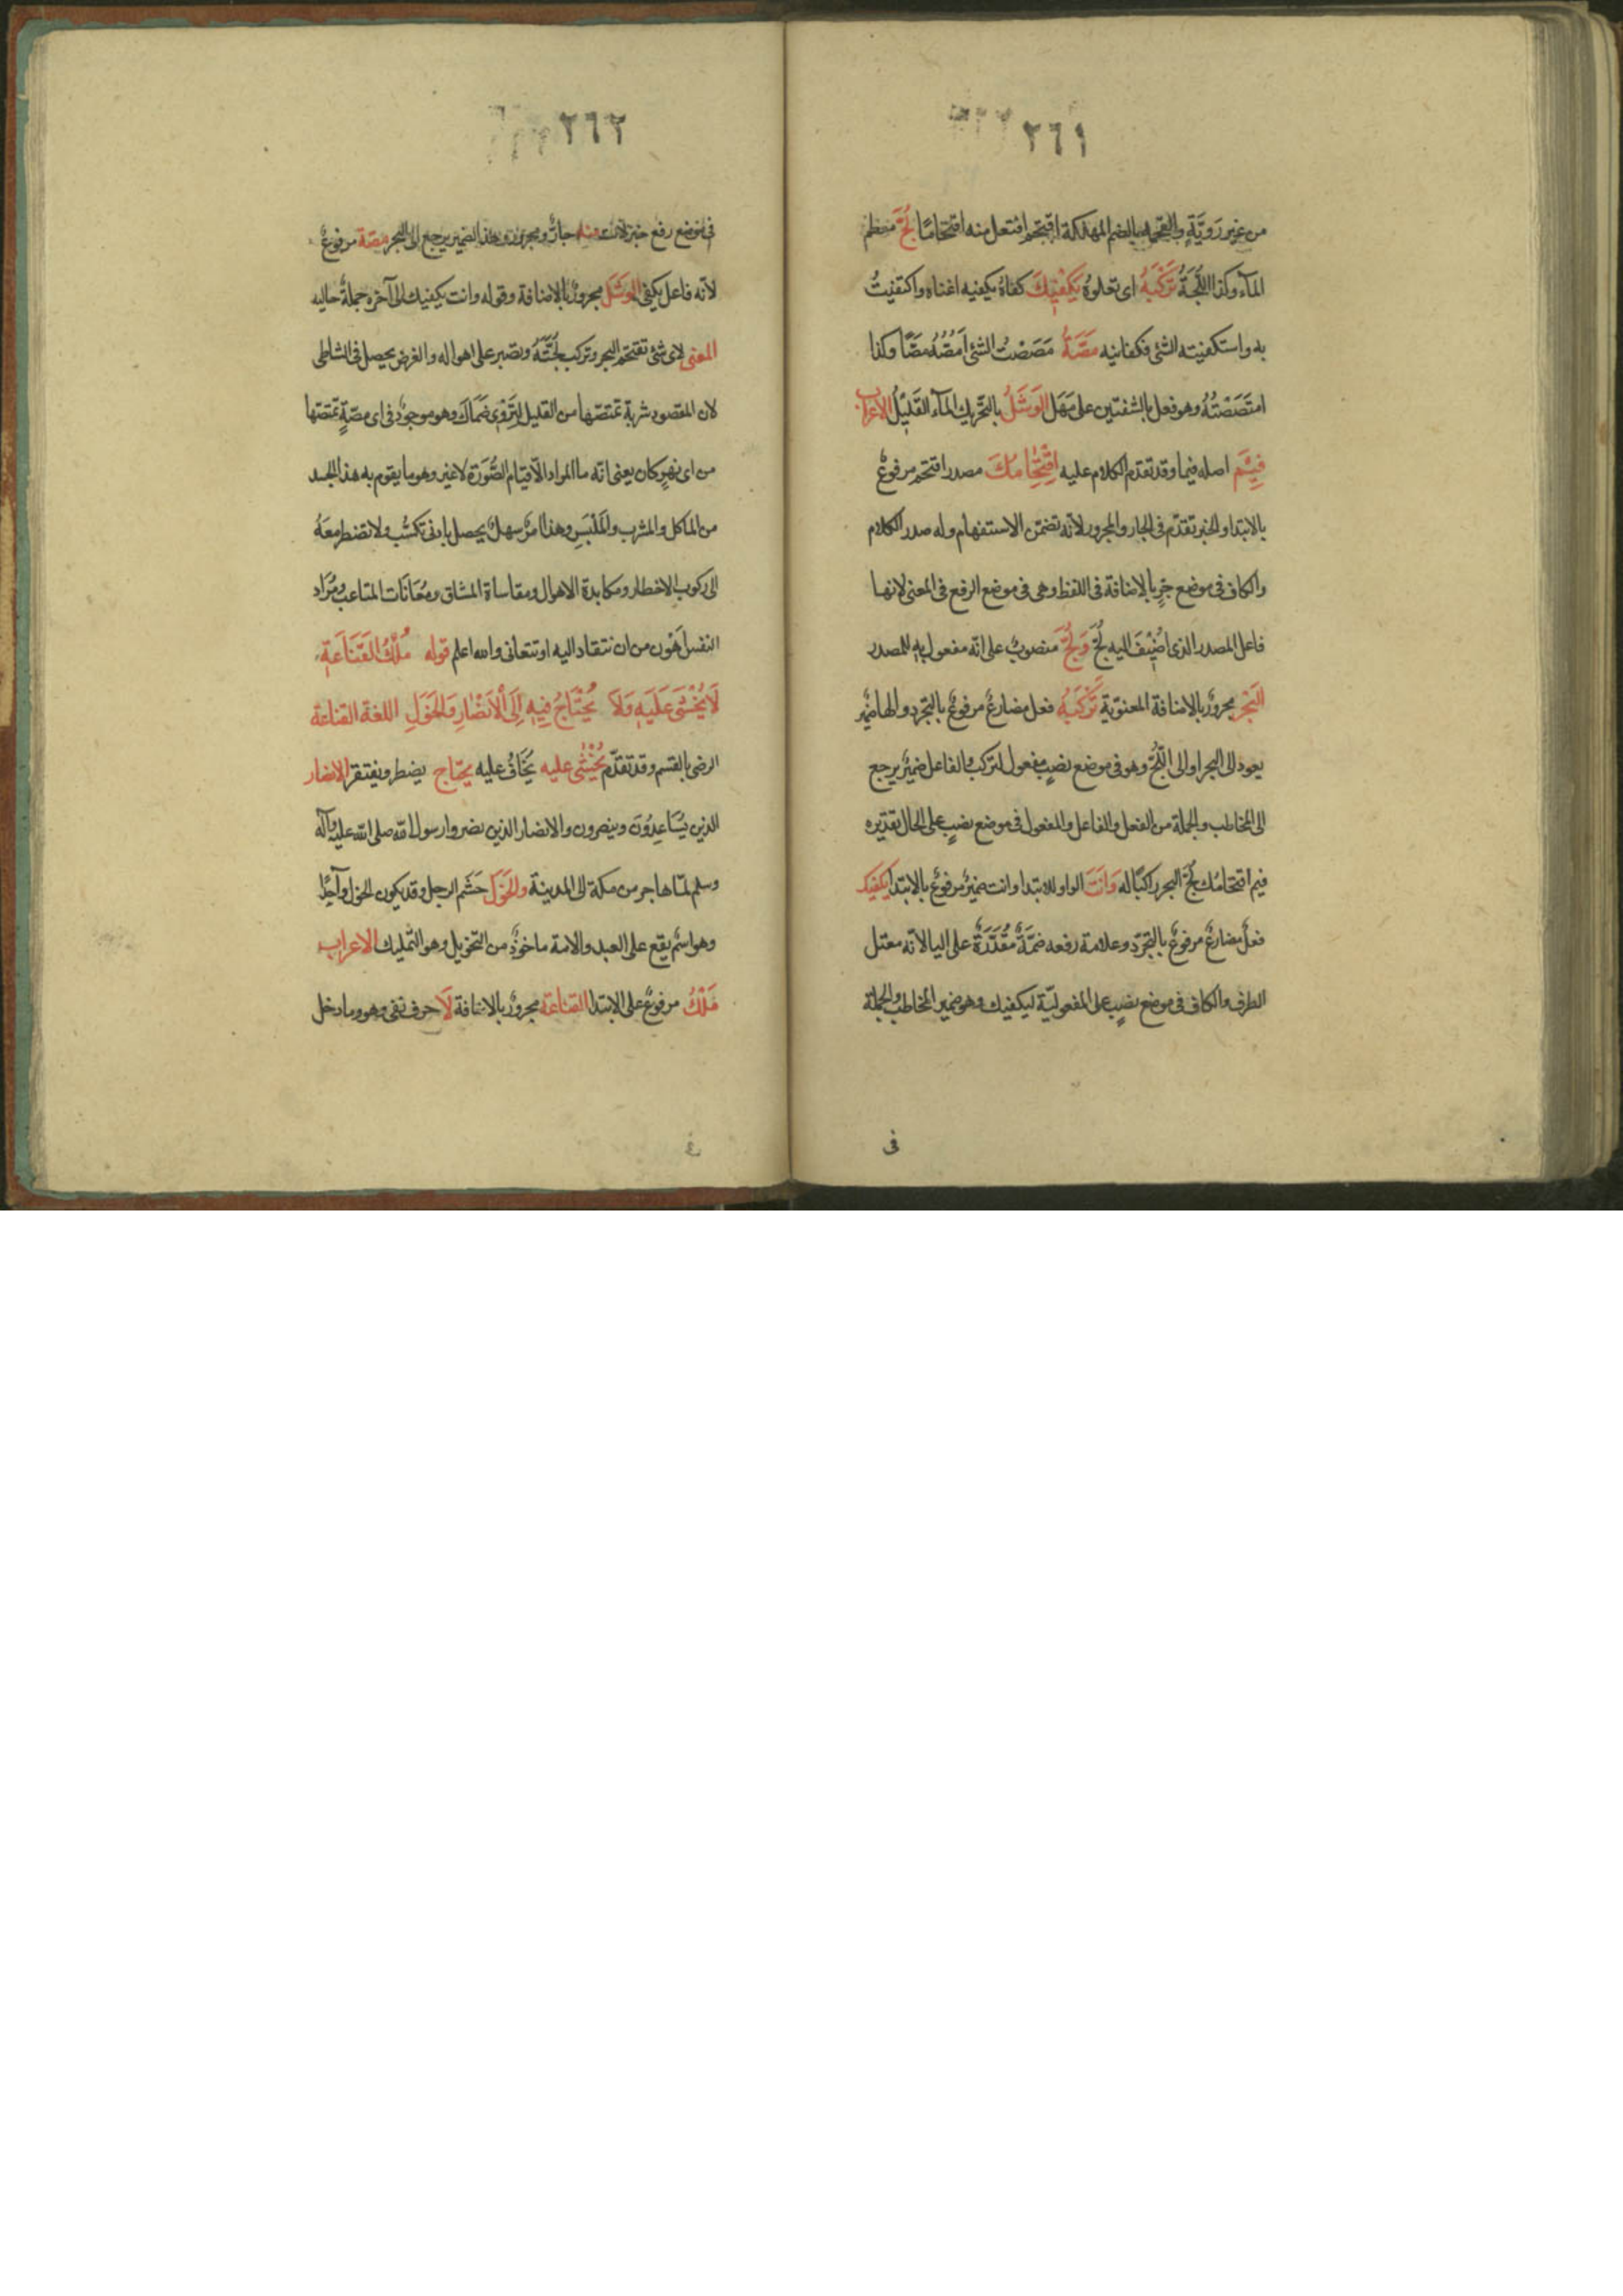 ٢٦١
من غير رَوِيَّةٍ والقحمة بالضم المهلكة اقتحم افتعل منه اقتحامًا لُجَّ معظم
المآء وكذا اللُّجَّةُ تَرْكَبُهُ اى تعلوهُ يَكْفِيْكَ كفاهُ يكفيه اغناه واكتفيتُ
به واستكفيته الشئ فكفانيه مَصَّةُ مَصَصْتُ الشئ اَمُصُّهُ مَصًّا وكذا
امتَصَصْتُهُ وهو فعل بالشفتين على مَهَل الوَشَلُ بالتحريك المآء القَليْلُ الاعراب
فِيْمَ اصله فيما وقد تقدم الكلام عليه اقْتِحَامُكَ مصدر اقتحم مرفوعٌ
بالابتدا والخبر تقدّم فى الجار والمجرور لانّه تضمّن الاستفهام وله صدر الكلام
والكاف فى موضع جرٍ بالاضافة فى اللفظ وهى فى موضع الرفع فى المعنى لانها
فاعل المصدر الذى اُضِيْفَ اليه لُجَّ وَلُجَّ منصوبٌ على انّه مفعول به للمصدر
البَحْرِ مجرورٌ بالاضافة المعنويّة تَرْكَبُهُ فعل مضارعٌ مرفوعٌ بالتجرد والها ضميرٌ
يعود الى البحر او الى اللُّجِّ وهو فى موضع نصبٍ مفعول لتركب والفاعل ضميرٌ يرجع
الى المخاطب والجملة من الفعل والفاعل والمفعول فى موضع نصبٍ على الحال تقديره
فيم اقتحامُك لُجَّ البحر راكبًا له وَاَنْتَ الواو للابتدا وانت ضميرٌ مرفوعٌ بالابتدا يكفيك
فعلٌ مضارعٌ مرفوعٌ بالتجرّد وعلامة رفعه ضمّةٌ مُقَدَّرَةٌ على اليا لانّه معتل
الطرف والكاف فى موضع نصبٍ على المفعوليّة ليكفيك وهو ضمير المخاطب والجملة
فى
٢٦٢
فى موضع رفع خبر لانت منه جارٌّ ومجرور وهذا الضمير يرجع الى البحر مصّة مرفوعٌ
لانّه فاعل يكفى الوَشَلِ مجرورٌ بالاضافة وقوله وانت يكفيك الى آخره جملةٌ حاليه
المعنى لاى شئ تقتحم البحر وتركب لُجَّتَهُ وتصبر على اهواله والغرض يحصل فى الشاطى
لان المقصود شربة تمتصّها من القليل لِتَرْوِى ضَمَاكَ وهو موجودٌ فى اى مصّةٍ تمتصّها
من اى نهرٍ كان يعنى انّه ما المراد الّا قيام الصُّوَرَة لا غير وهو ما يقوم به هذا الجسد
من الماكل والمشرب والمَلْبَسِ وهذا امرٌ سهلٌ يحصل بادنى تكسُّب ولا تضطر معَهُ
الى ركوب الاخطار ومكابدة الاهوال ومقاساة المشاق ومُعَانَات المتاعب ومُرَاد
النفس اَهْوَن من ان تنقاد اليه او تتعانى والله اعلم قوله مُلْكُ القَنَاعَةِ
لَا يُخْشَى عَلَيْهِ وَلَا يُحْتَاجُ فِيْهِ اِلَى الْاَنْصَارِ وَالخَوَلِ اللغة القناعة
الرضى بالقسم وقد تقدّم يُخْشَى عليه يُخَافُ عليه يحتاج يضطر ويفتقر الانصار
الذين يُسَاعِدُوْنَ وينصرون والانصار الذين نصروا رسول الله صلى الله عليه وآله
وسلم لمّا هاجر من مكة الى المدينة والخَوَل حَشَم الرجل وقد يكون الخول واحِدًا
وهو اسمٌ يقع على العبد والامة ماخوذٌ من التخويل وهو التّمليك الاعراب
مُلْكُ مرفوعٌ على الابتدا القناعة مجرورٌ بالاضافة لَا حرف نفى وهو وما دخل